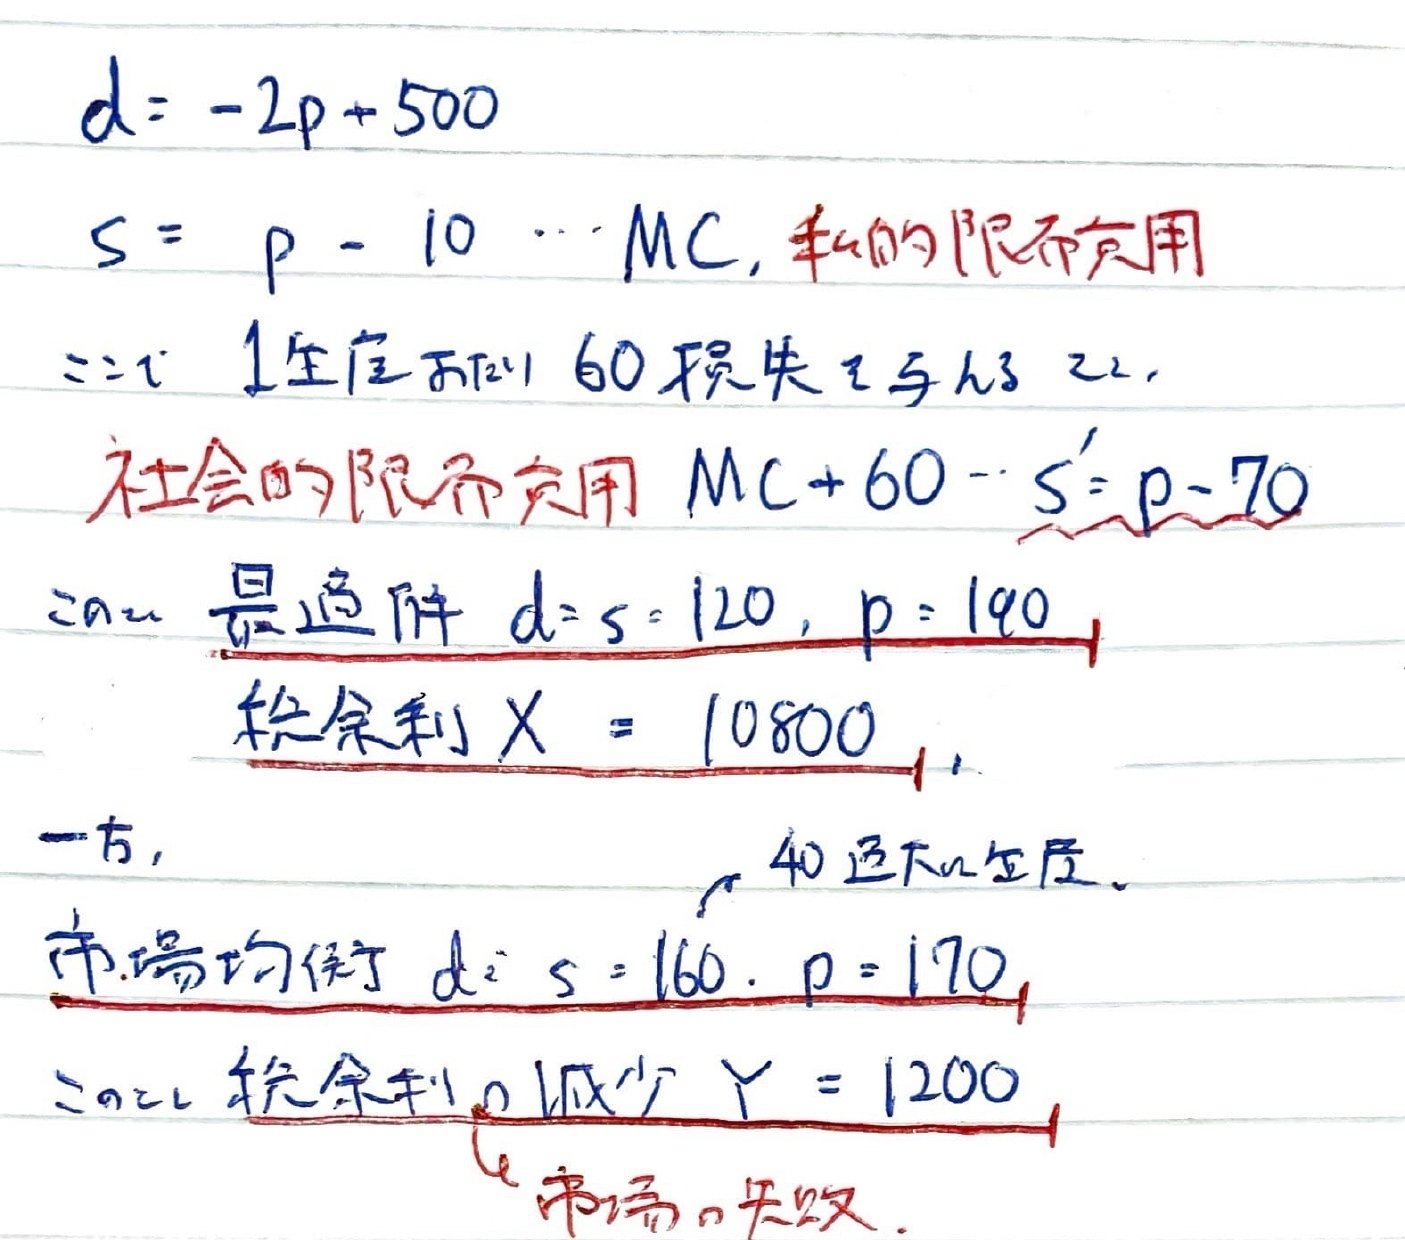 d = -2p + 500
s = p - 10 … MC, 私的限界費用
ここで 1生産あたり 60 損失を与える とし,
社会的限界費用 MC + 60 … s' = p - 70
このとき 最適解 d = s = 120, p = 190
総余剰 X = 10800,
一方,
40 過大に生産.
市場均衡 d = s = 160. p = 170
このとき 総余剰の減少 Y = 1200
市場の失敗.